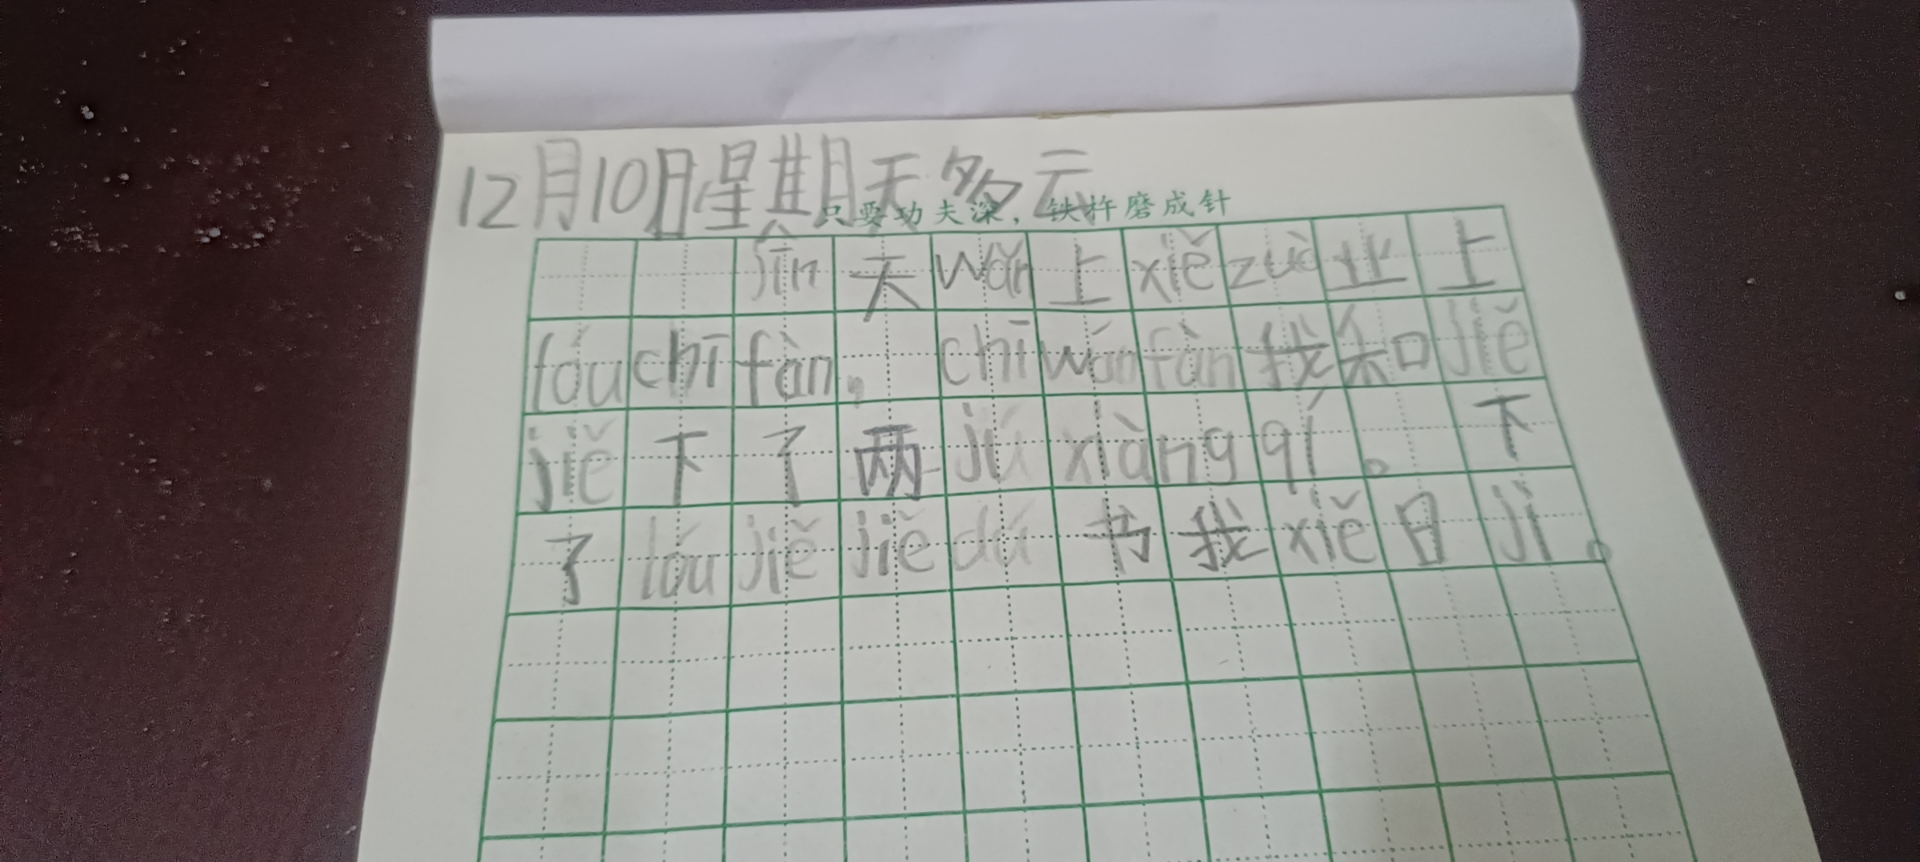 12月10日星期天多云
只要功夫深，铁杵磨成针
jīn天wǎn上xiězuò业上
lóuchīfàn。chīwánfàn我和jiě
jiě下了两júxiàngqí。下
了lóujiějiědú书我xiě日jì。